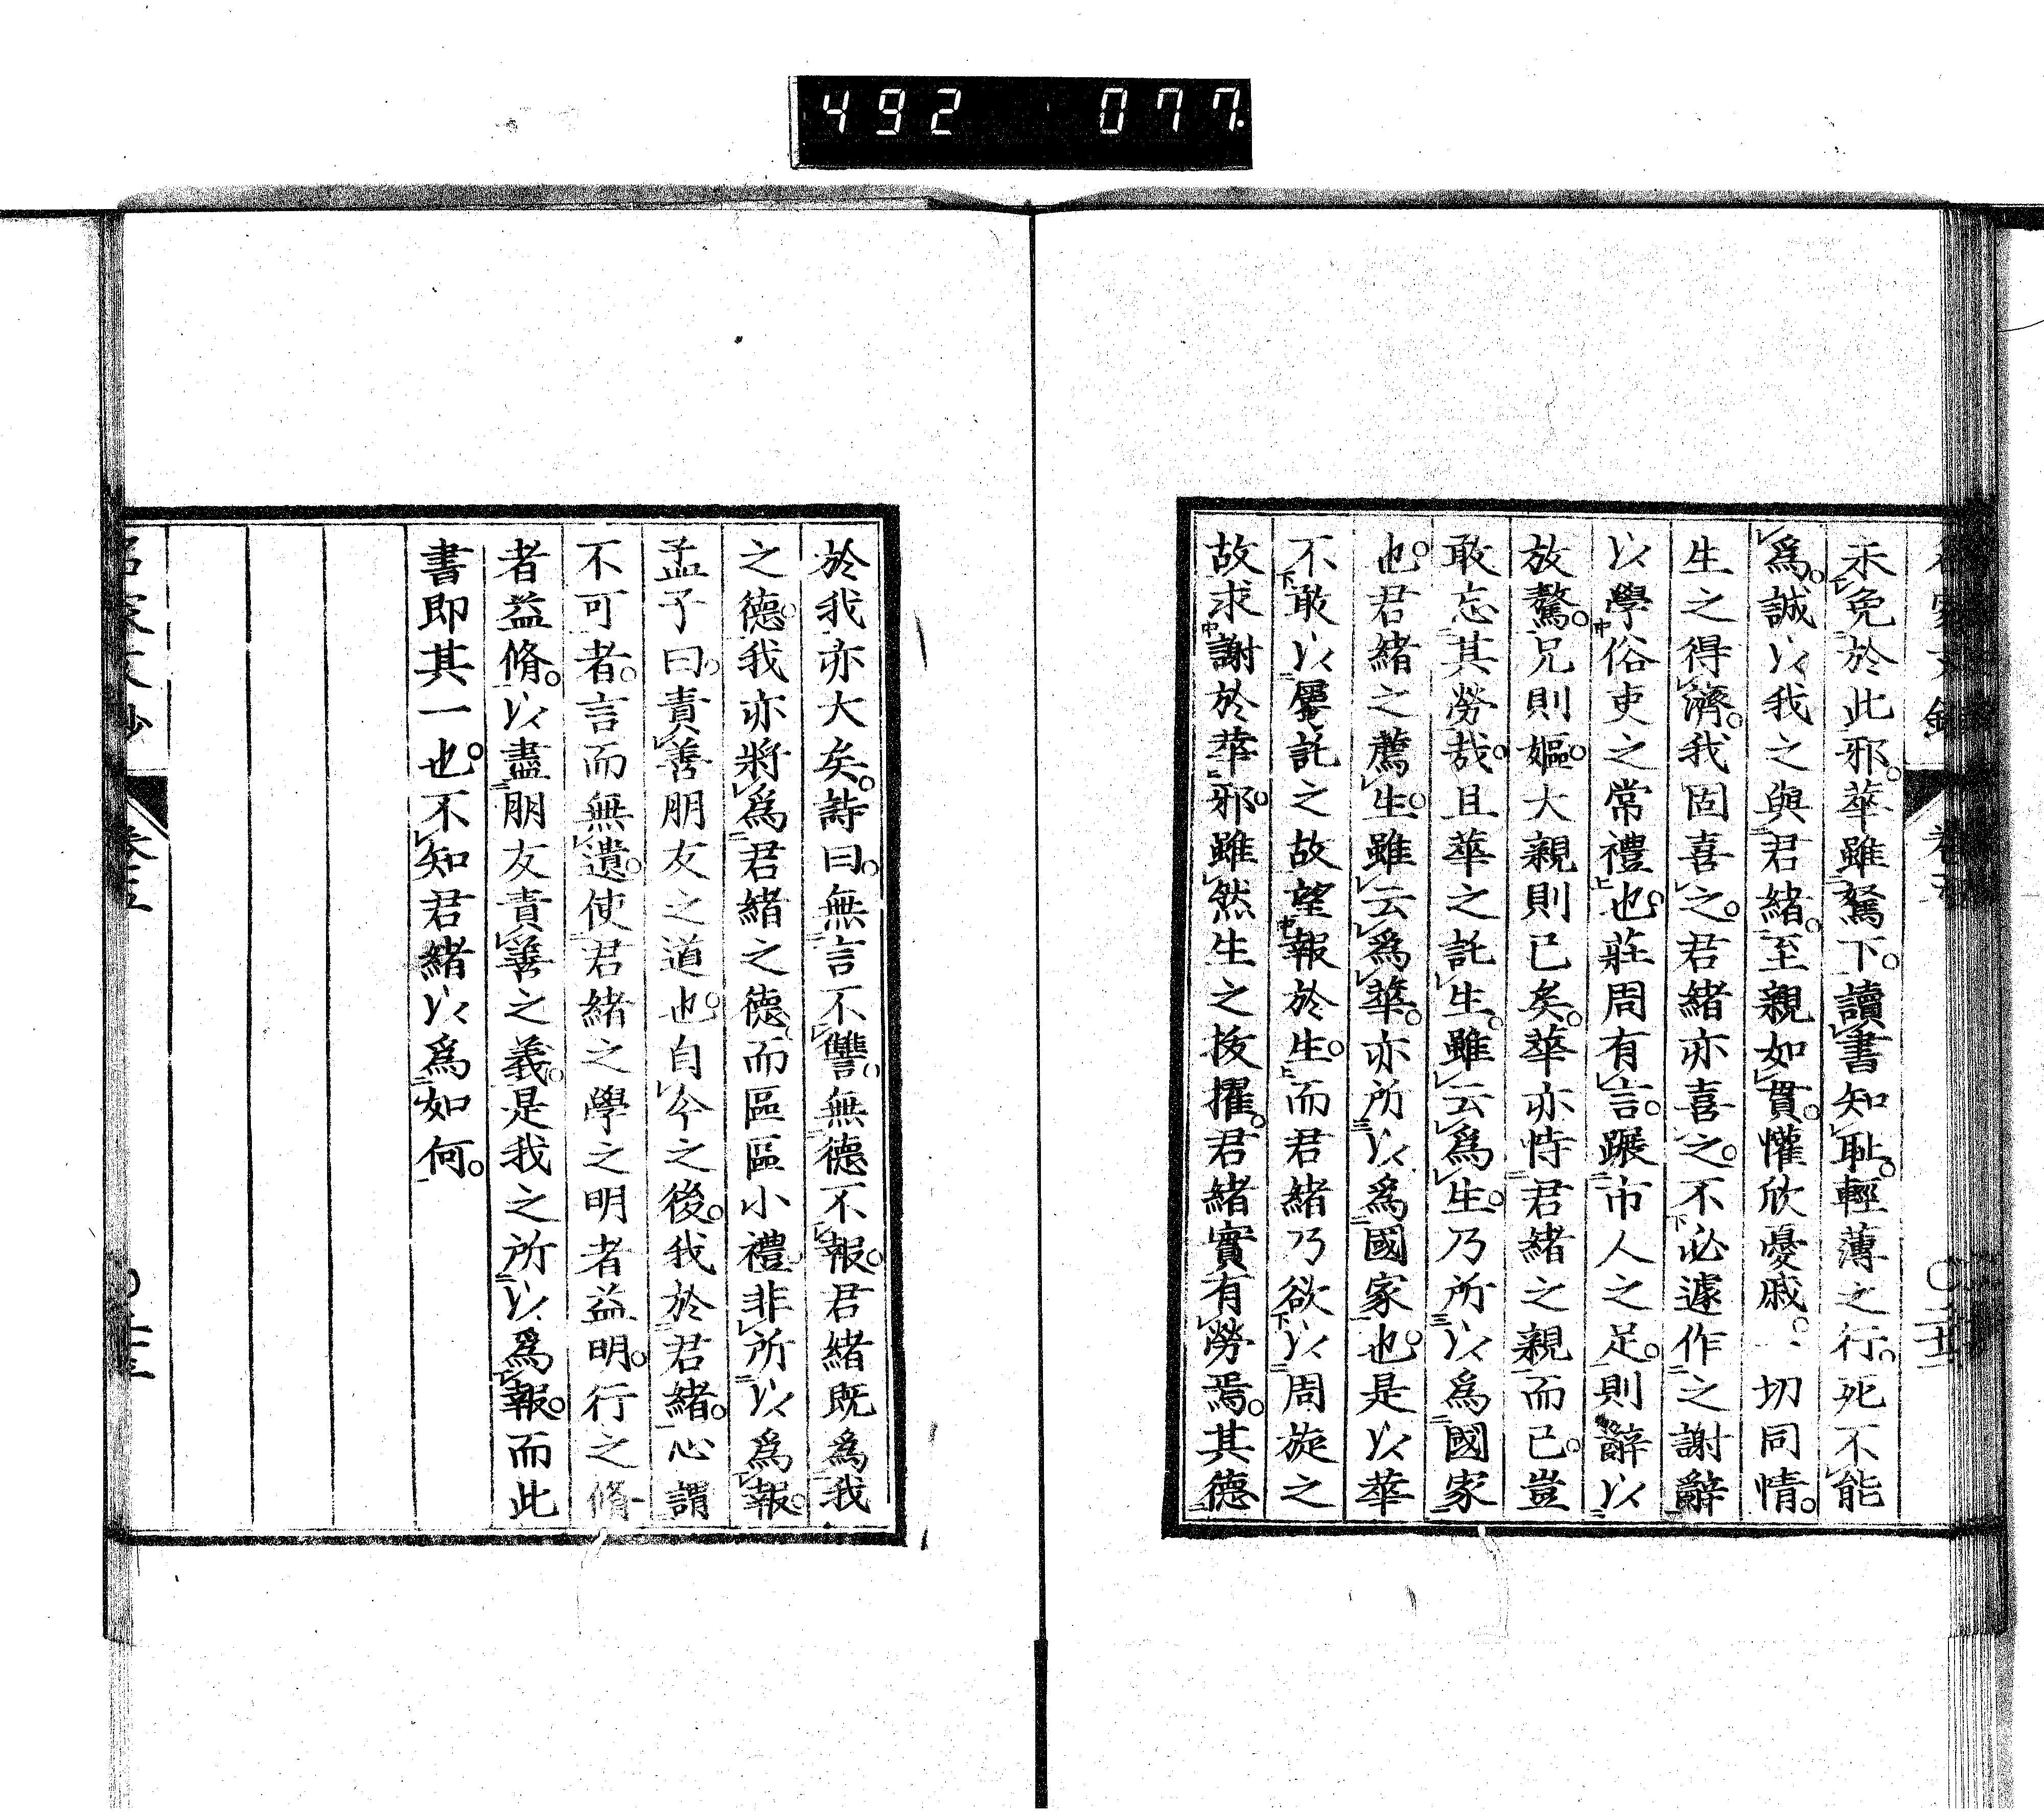 492 077
未免於此邪。華雖駑下。讀書知恥。輕薄之行。死不能
爲。誠以我之與君緒。至親如貫。懽欣憂戚。一切同情。
生之得濟。我固喜之。君緒亦喜之。不必遽作之謝辭
以學俗吏之常禮也。莊周有言。蹍市人之足。則辭以
放驁。兄則嫗。大親則已矣。華亦恃君緒之親而已。豈
敢忘其勞哉。且華之託生。雖云爲生。乃所以爲國家
也。君緒之薦生。雖云爲華。亦所以爲國家也。是以華
不敢以屬託之故望報於生。而君緒乃欲以周旋之
故求謝於華邪。雖然生之拔擢。君緒實有勞焉。其德
於我亦大矣。詩曰。無言不讐。無德不報。君緒既爲我
之德。我亦將爲君緒之德。而區區小禮。非所以爲報。
孟子曰。責善朋友之道也。自今之後。我於君緒。心謂
不可者。言而無遺。使君緒之學之明者益明。行之脩
者益脩。以盡朋友責善之義。是我之所以爲報。而此
書即其一也。不知君緒以爲如何。
名家文鈔 卷五